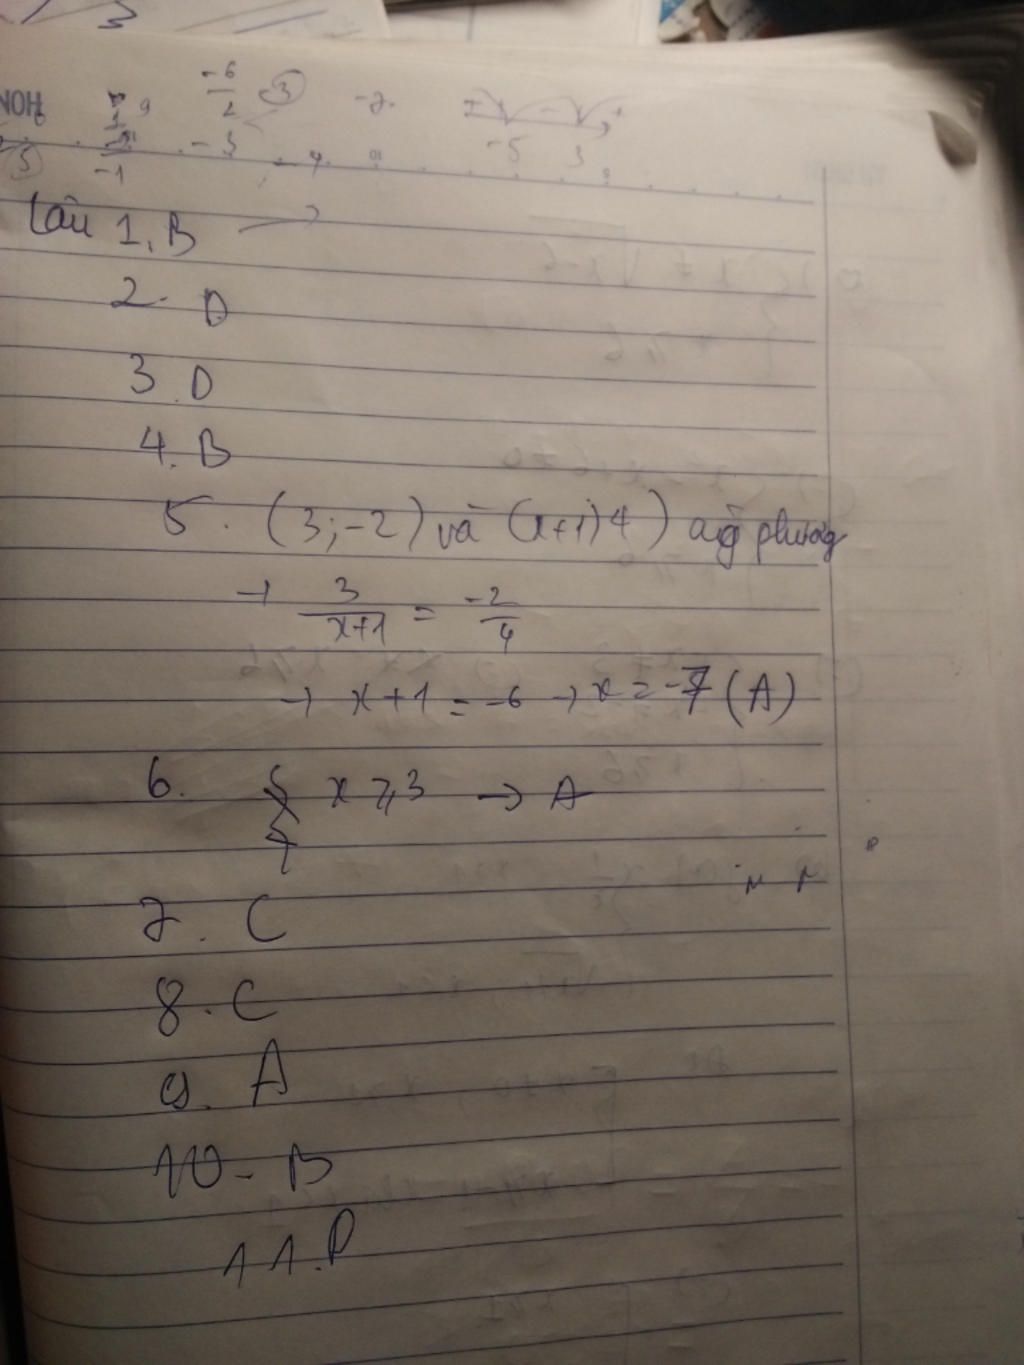 -6
2
3
-2.
+ - +
-5 3
5
-1
-3
-4
Câu 1. B
2. D
3. D
4. B
5. (3;-2) và (x+1;4) cùg phương
→ 3/(x+1) = -2/4
→ x+1 = -6 → x = -7 (A)
6. x ≥ 3 → A
7. C
8. C
9. A
10 - B
11. D